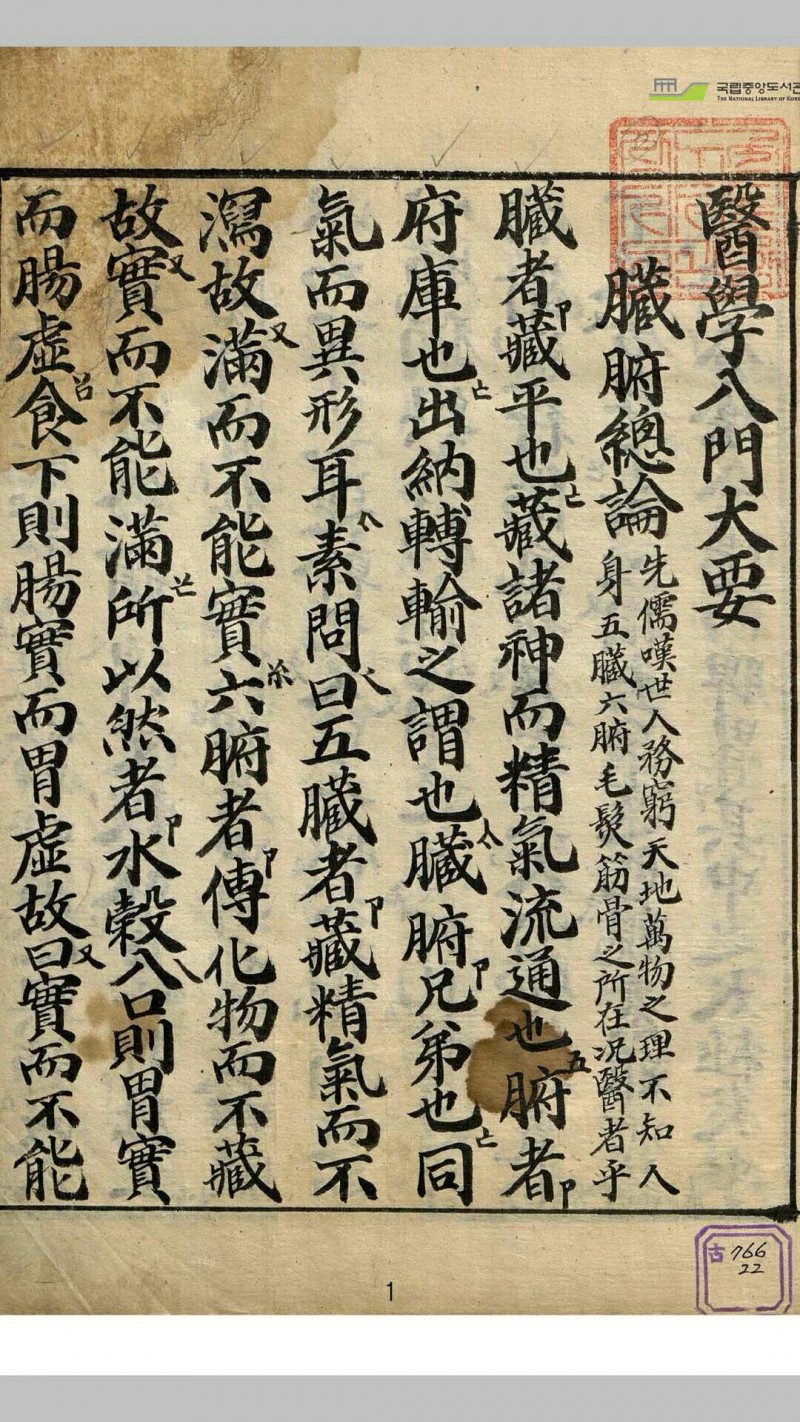 국립중앙도서관
THE NATIONAL LIBRARY OF KOREA
醫學入門大要
臟腑總論
先儒嘆世人務窮天地萬物之理不知人
身五臟六腑毛髮筋骨之所在况醫者乎
臟者卩藏平也亡藏諸神而精氣流通也五腑者卩
府庫也亡出納轉輸之謂也臟腑兄弟也亡同
氣而異形耳素問曰五臟者卩藏精氣而不
瀉故又滿而不能實六腑者卩傳化物而不藏
故又實而不能滿所以然者卩水榖入口則胃實
而腸虛食下則腸實而胃虛故曰又實而不能
古766
22
1